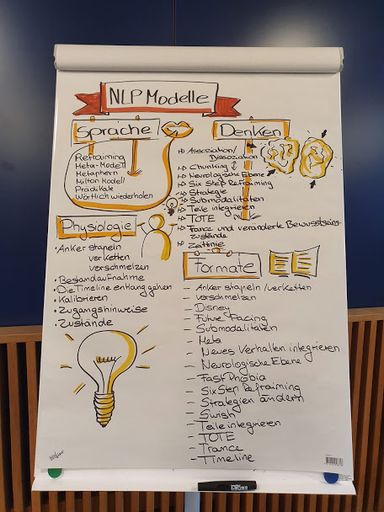 NLP Modelle
Sprache
Reframing
Meta-Modell
Metaphern
Milton Modell
Prädikate
Wörtlich wiederholen
Denken
Assoziation/
Dissoziation
Chunking
Neurologische Ebene
Six Step Reframing
Strategie
Submodalitäten
Teile integrieren
TOTE
Trance und veränderte Bewusstseins-
zustände
Zeitlinie
Physiologie
• Anker stapeln
verketten
verschmelzen
• Bestandaufnahme
• Die Timeline entlang gehen
• Kalibrieren
• Zugangshinweise
• Zustände
Formate
- Anker stapeln/verketten
- verschmelzen
- Disney
- Future Pacing
- Submodalitäten
- Meta
- Neues Verhalten integrieren
- Neurologische Ebene
- Fast Phobia
- Six Step Refraiming
- Strategien ändern
- Swish
- Teile integrieren
- TOTE
- Trance
- Timeline